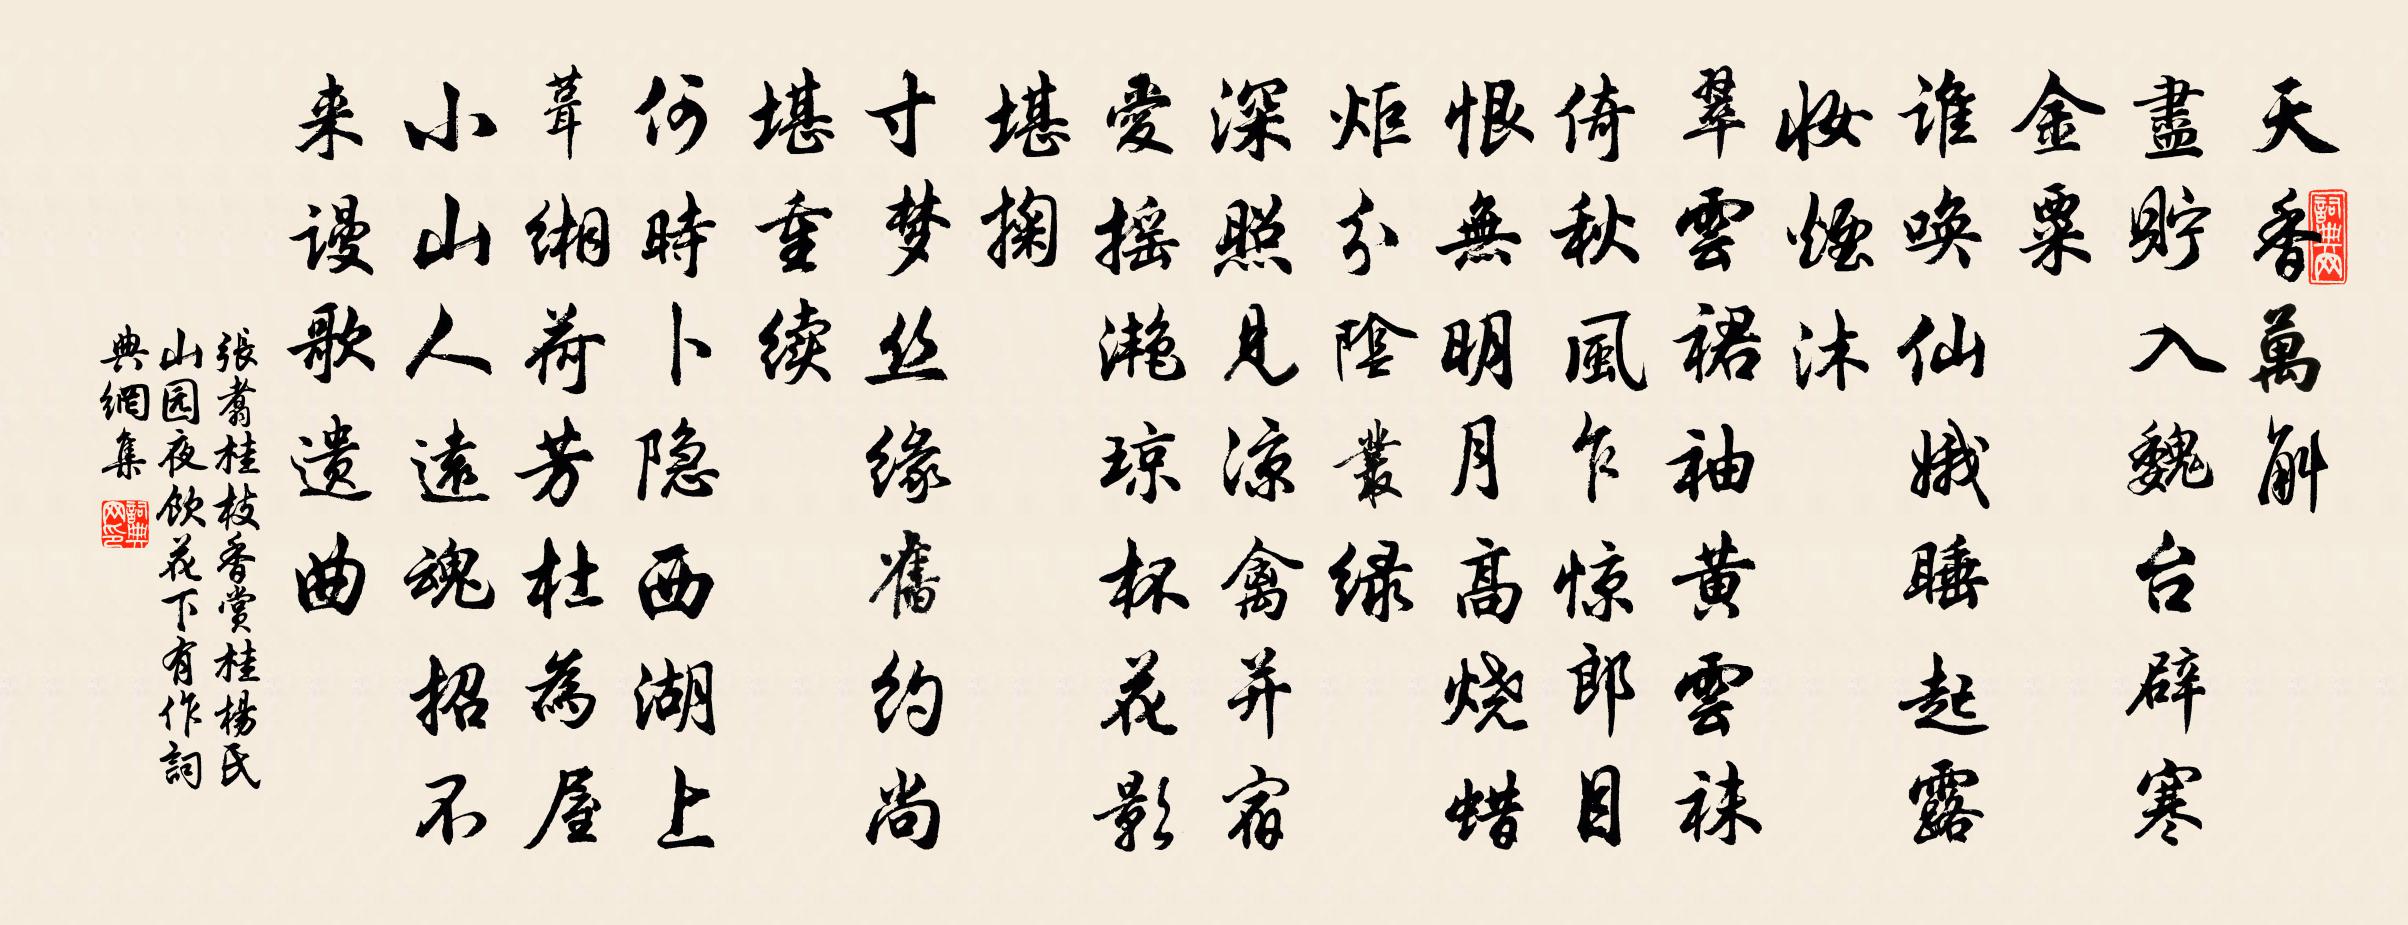 天香萬斛
盡貯入魏台辟寒
金粟
谁唤仙娥睡起露
妆煙沐
翠雲裙袖黄雲袜
倚秋風乍惊郎目
恨無明月高烧蜡
炬分陰叢绿
深照見凉禽并宿
愛摇滟琼杯花影
堪掬
寸梦丝缘舊约尚
堪重续
何時卜隐西湖上
葺缃荷芳杜為屋
小山人遠魂招不
来谩歌遗曲
張翥桂枝香赏桂楊氏
山园夜飲花下有作詞
典網集
詞典网
詞典网印